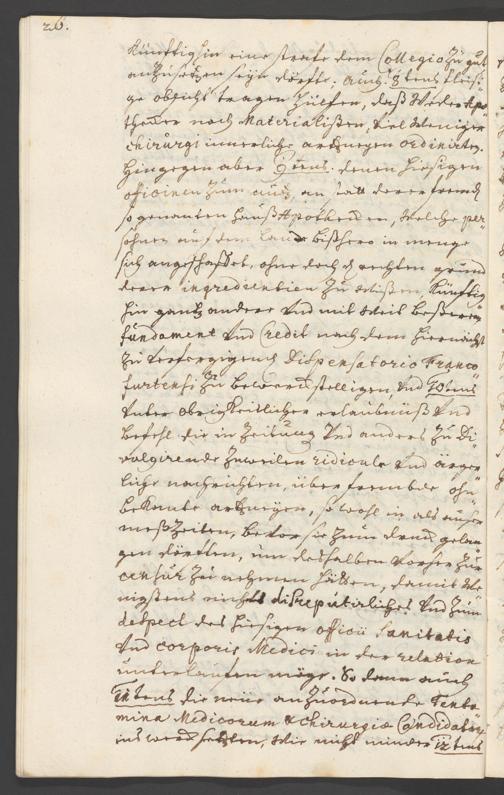 26.
Künfftighin eine strafe dem Collegio zu gut
anzusetzen seyn dörffte; auch 8tens fleisi-
ge obsicht tragen hülfen, daß weder Apo-
thecker noch Materialisten, viel weniger
chirurgi innerliche artzneyen ordiniren.
Hingegen aber 9tens denen hiesigen
officinen zum auf an statt derer fremd
so genanten Hauß Apothecken, welche per-
sohnen auf dem Lande bißhero in menge
sich angeschaffet, ohne doch rechten grund
derer ingredientien zu wißen, Künfftig
hin gantz andere und mit weit beßerem
fundament und Credit nach dem hiernächst
zu verfertigend Dispensatorio Franco
furtensi zu bewerckstelligen, und 10tens
unter obrigkeitlicher erlaubnüß und
befehl die in Zeitung und anders zu Di-
vulgirende zuweilen ridicule und ärger-
liche nachrichten, über frembde ohn-
bekante artzneyen, so wohl in als auser
meßzeiten, bevor sie zum druck gelan-
gen dörfften, um deshalben vorher zur
censur zu nehmen hätten, damit we-
nigstens nichts disreputirliches und zum
despect des hiesigen officii Sanitatis
und corporis Medici in der relation
unterlauffen möge. So dann auch
11tens die neue anzuordnende Tenta
mina Medicorum & chirurgiæ Candidator
ins werck setzten, wie nicht minder 12tens